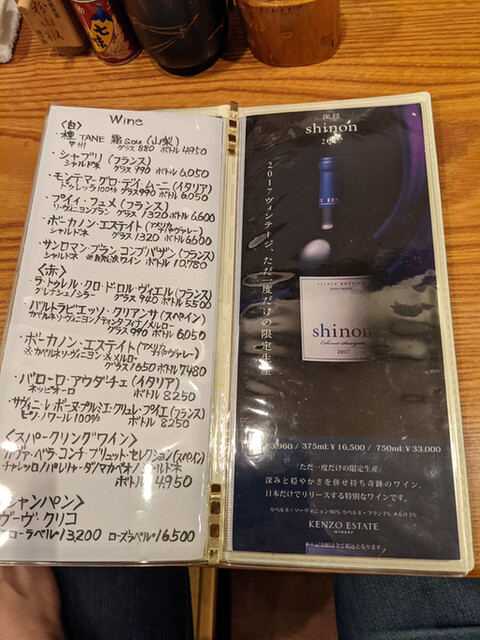 Wine
〈白〉
・種 TANE 霜 Sou (山梨)
甲州 グラス 880 ボトル 4950
・シャブリ (フランス)
シャルドネ グラス 990 ボトル 6,050
・モンテマーグロ・デイ・ムーニ (イタリア)
ドゥレッラ100% グラス 990 ボトル 6,050
・プイィ・フュメ (フランス)
ソーヴィニヨンブラン グラス 1320 ボトル 6,600
・ボーカノン・エステイト (アメリカ ナパヴァレー)
シャルドネ グラス 1320 ボトル 6600
・サンロマン・ブラン コンブバザン (フランス)
シャルドネ ※自然派ワイン ボトル 10780
〈赤〉
・ラ・トゥレル・クロ・ド・ロル・ヴィエル (フランス)
グレナッシュ/シラー グラス 940 ボトル 5500
・バルトラビエッソ・クリアンサ (スペイン)
カベルネソーヴィニヨン/ティンタフィナ/メルロー
グラス 990 ボトル 6050
・ボーカノン・エステイト (アメリカ ナパヴァレー)
※カベルネソーヴィニヨン ※メルロー
グラス 1650 ボトル 7480
・バローロ・アウダチェ (イタリア)
ネッビオーロ ボトル 8250
・サヴィニ・レ・ボーヌ・プルミエ・クリュ・レ・プイエ (フランス)
ピノ・ノワール 100% ボトル 8250
〈スパークリングワイン〉
カヴァ・ベラ・コンチ・ブリュット・セレクション (スペイン)
チャレッロ/パレリャーダ/マカベオ/シャルドネ
ボトル 4950
シャンパン〉
ヴーヴ・クリコ
ローラベル・13200 ローズラベル・16,500
shinon
2017ヴィンテージ、ただ一度だけの限定生産
shinon
Cabernet Sauvignon
2017
3,960 / 375ml: ¥ 16,500 / 750ml: ¥ 33,000
"ただ一度だけの限定生産"
深みと穏やかさを併せ持ち奇跡のワイン、
日本だけでリリースする特別なワインです。
カベルネ・ソーヴィニョン90% カベルネ・フラン7% メルロ3%
KENZO ESTATE
WINERY